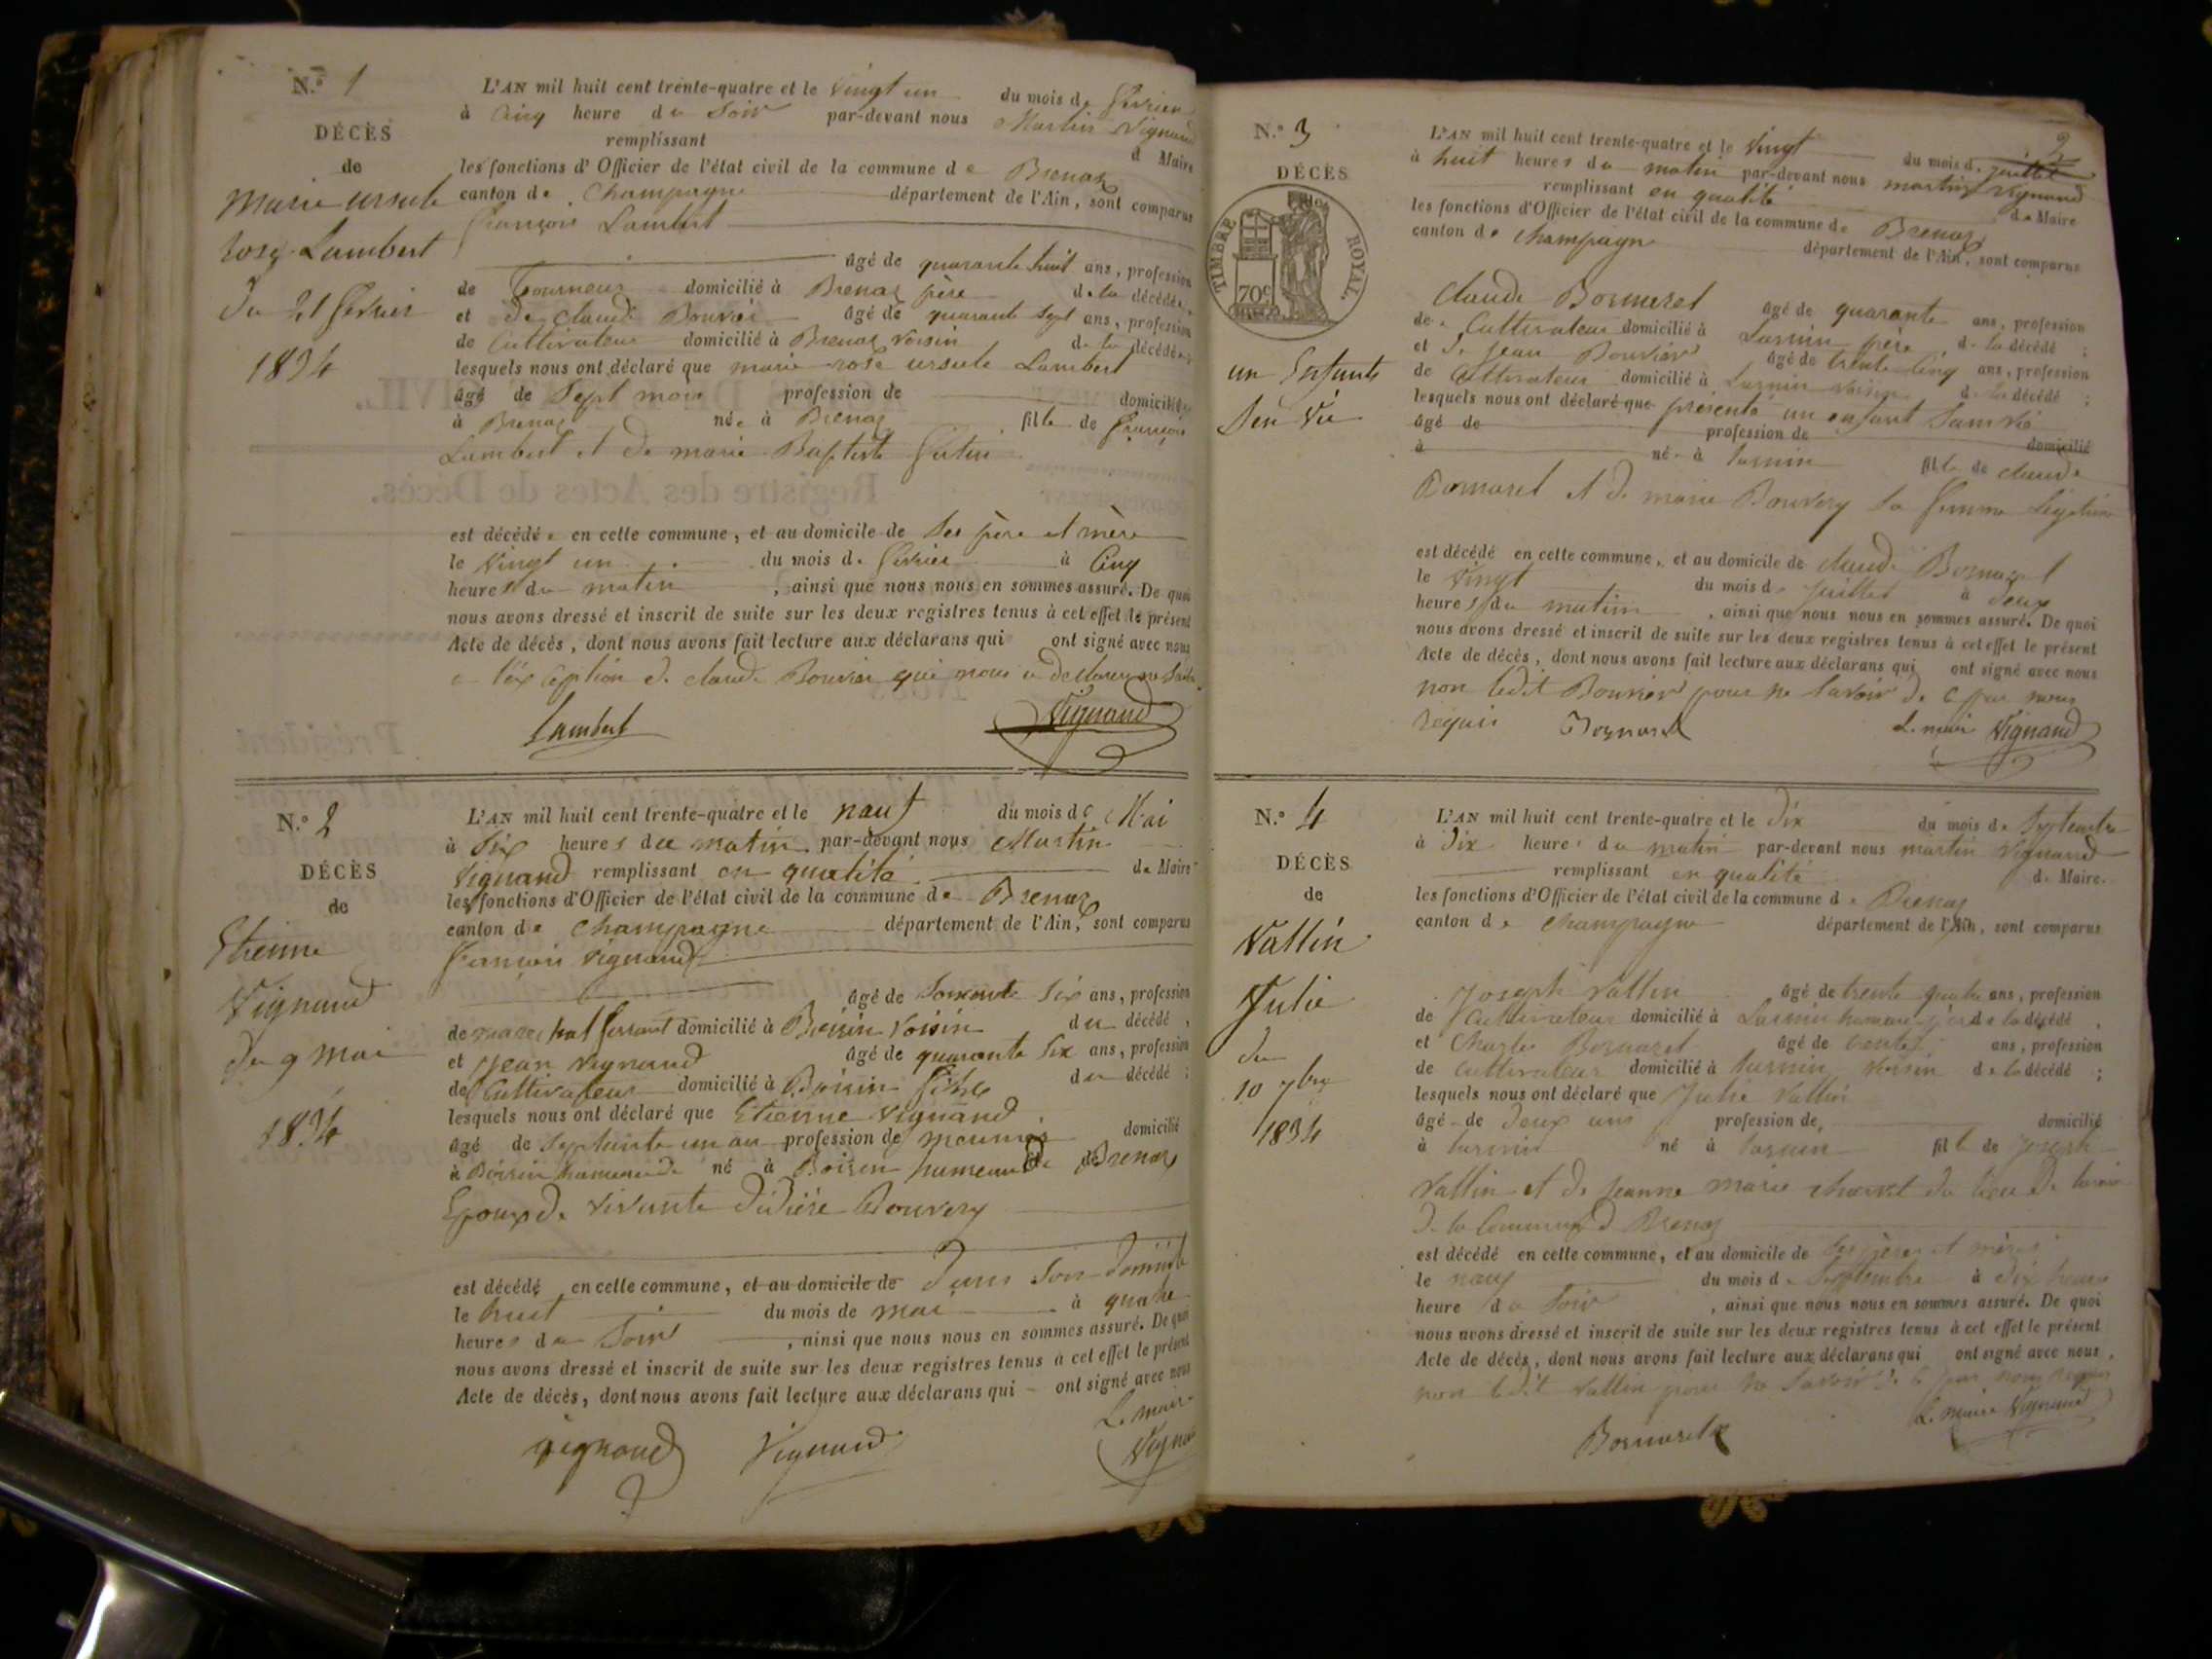 N.º 1
DÉCÈS
de
Marie ursule
rose Lambert
du 21 fevrier
1834
L'AN mil huit cent trente-quatre et le vingt un du mois de fevrier
à cinq heure du soir par-devant nous Martin Vignand
remplissant d Maire
les fonctions d'Officier de l'état civil de la commune de Brenaz
canton de Champagne département de l'Ain, sont comparus
françois Lambert
âgé de quarante huit ans, profession
de Tourneur domicilié à Brenaz père de la décédée,
et De claude Bouvier âgé de quarante sept ans, profession
de Cultivateur domicilié à Brenaz voisin de la décédée;
lesquels nous ont déclaré que marie rose ursule Lambert
âgé de Sept mois profession de domicilié
à Brenaz née à Brenaz fille de françois
Lambert et de marie Baptiste
est décédée en cette commune, et au domicile de Ses père et mère
le vingt un du mois de fevrier à Cinq
heures du matin, ainsi que nous nous en sommes assuré. De quoi
nous avons dressé et inscrit de suite sur les deux registres tenus à cet effet le présent
Acte de décès, dont nous avons fait lecture aux déclarans qui ont signé avec nous
a l'exception de claude Bouvier qui nous a
Lambert Vignand
N.º 2
DÉCÈS
de
Etienne
Vignand
du 9 mai
1834
L'AN mil huit cent trente-quatre et le nauf du mois de Mai
à Six heures du matin par-devant nous Martin
Vignand remplissant en qualité de Maire
les fonctions d'Officier de l'état civil de la commune de Brenaz
canton de Champagne département de l'Ain, sont comparus
Vignand
âgé de Soixante Six ans, profession
de domicilié à Boisin Voisin du décédé,
et Jean Vignand âgé de quarante Six ans, profession
de Cultivateur domicilié à Boisin du décédé;
lesquels nous ont déclaré que Etienne Vignand
âgé de Septante un an profession de meunier domicilié
à Boisin hameau de né à Boisin hameau de Brenaz
Epoux de vivante Bouvery
est décédé en cette commune, et au domicile de Dans Son Domicile
le huit du mois de mai à quatre
heures du Soir, ainsi que nous nous en sommes assuré. De quoi
nous avons dressé et inscrit de suite sur les deux registres tenus à cet effet le présent
Acte de décès, dont nous avons fait lecture aux déclarans qui ont signé avec nous
vignand Vignand Le maire
Vignand
2
N.º 3
DÉCÈS
TIMBRE ROYAL.
70c
un Enfant
Sen Vie
L'AN mil huit cent trente-quatre et le Vingt du mois de juillet
à huit heures du matin par-devant nous martin Vignand
remplissant en qualité de Maire
les fonctions d'Officier de l'état civil de la commune de Brenaz
canton de Champagne département de l'Ain, sont comparus
Claude Bornarel âgé de quarante ans, profession
de Cultivateur domicilié à père de la décédé;
et de Jean Bouvier âgé de trente Cinq ans, profession
de Cultivateur domicilié à voisin de la décédé;
lesquels nous ont déclaré que présenté un enfant Sans vie
âgé de profession de domicilié
à né à fille de claude
Bornarel et de marie Bouvery Sa femme légitime
est décédé en cette commune, et au domicile de claude Bornarel
le vingt du mois de juillet à deux
heures du matin, ainsi que nous nous en sommes assuré. De quoi
nous avons dressé et inscrit de suite sur les deux registres tenus à cet effet le présent
Acte de décès, dont nous avons fait lecture aux déclarans qui ont signé avec nous
non ledit Bouvier pour ne Savoir de ce par nous
requis Bornarel Le maire Vignand
N.º 4
DÉCÈS
de
Vallin
Julie
du
10 7bre
1834
L'AN mil huit cent trente-quatre et le dix du mois de Septembre
à dix heures du matin par-devant nous martin Vignand
remplissant en qualité de Maire.
les fonctions d'Officier de l'état civil de la commune de Brenaz
canton de Champagne département de l'Ain, sont comparus
Joseph Vallin âgé de trente quatre ans, profession
de Cultivateur domicilié à père de la décédé,
et Charles Bornarel âgé de trente ans, profession
de Cultivateur domicilié à voisin de la décédé;
lesquels nous ont déclaré que Julie Vallin
âgé de Deux ans profession de domicilié
à né à fille de joseph
Vallin et de Jeanne marie du lieu de
De la Commune de Brenaz
est décédé en cette commune, et au domicile de Ses père et mère
le nauf du mois de Septembre à dix heures
heure du Soir, ainsi que nous nous en sommes assuré. De quoi
nous avons dressé et inscrit de suite sur les deux registres tenus à cet effet le présent
Acte de décès, dont nous avons fait lecture aux déclarans qui ont signé avec nous,
non ledit Vallin pour ne Savoir de ce par nous requis
Bornarel Le maire Vignand